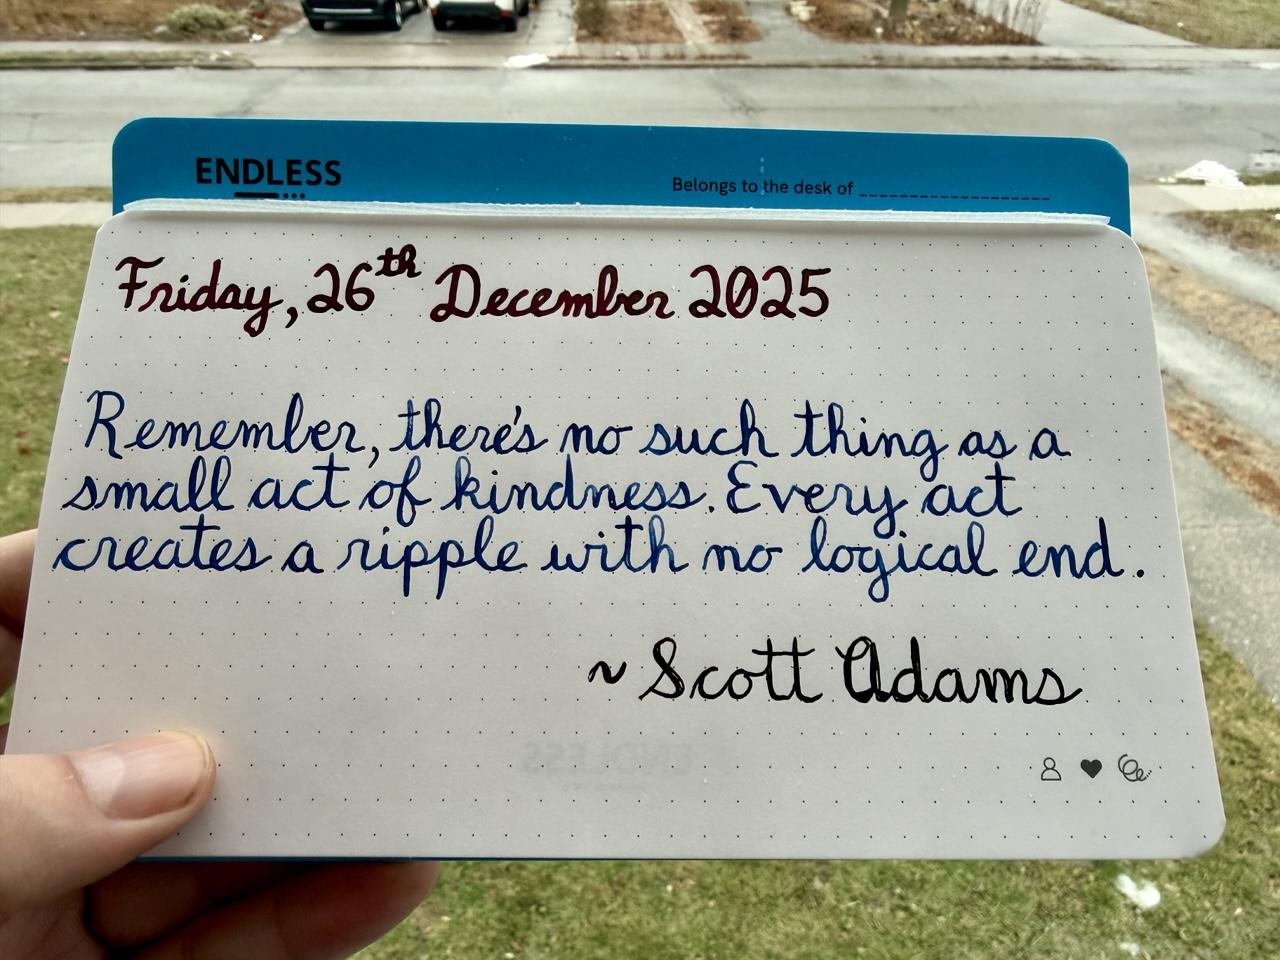 ENDLESS
Belongs to the desk of
Friday, 26th December 2025
Remember, there's no such thing as a
small act of kindness. Every act
creates a ripple with no logical end.
~ Scott Adams
ENDLESS